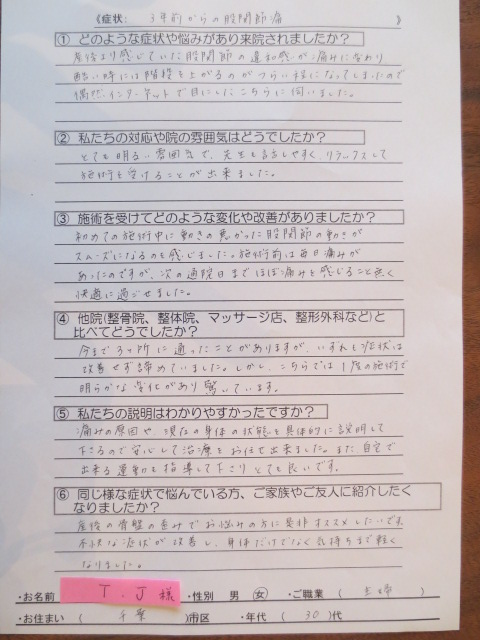 《症状： 3年前からの股関節痛 》
① どのような症状や悩みがあり来院されましたか？
産後より感じていた股関節の違和感が痛みに変わり
酷い時には階段を上がるのがつらい様になってしまったので
偶然インターネットで目にしたこちらに伺いました。
② 私たちの対応や院の雰囲気はどうでしたか？
とても明るい雰囲気で、先生も話しやすく、リラックスして
施術を受けることが出来ました。
③ 施術を受けてどのような変化や改善がありましたか？
初めての施術中に動きの悪かった股関節の動きが
スムーズになるのを感じました。施術前は毎日痛みが
あったのですが、次の通院日までほぼ痛みを感じること無く
快適に過ごせました。
④ 他院(整骨院、整体院、マッサージ店、整形外科など)と
比べてどうでしたか？
今まで3ヶ所に通ったことがありますが、いずれも症状は
改善せず諦めていました。しかし、こちらでは1度の施術で
明らかな変化があり驚いています。
⑤ 私たちの説明はわかりやすかったですか？
痛みの原因や、現在の身体の状態を具体的に説明して
下さるので安心して治療をお任せ出来ました。また自宅で
出来る運動も指導して下さりとても良いです。
⑥ 同じ様な症状で悩んでいる方、ご家族やご友人に紹介したく
なりましたか？
産後の骨盤の歪みでお悩みの方に是非オススメしたいです。
不快な症状が改善し、身体だけでなく気持ちまで軽く
なりました。
・お名前 T.J様 ・性別 男 女 ・ご職業 ( 主婦 )
・お住まい ( 千葉 )市区 ・年代 ( 30 )代